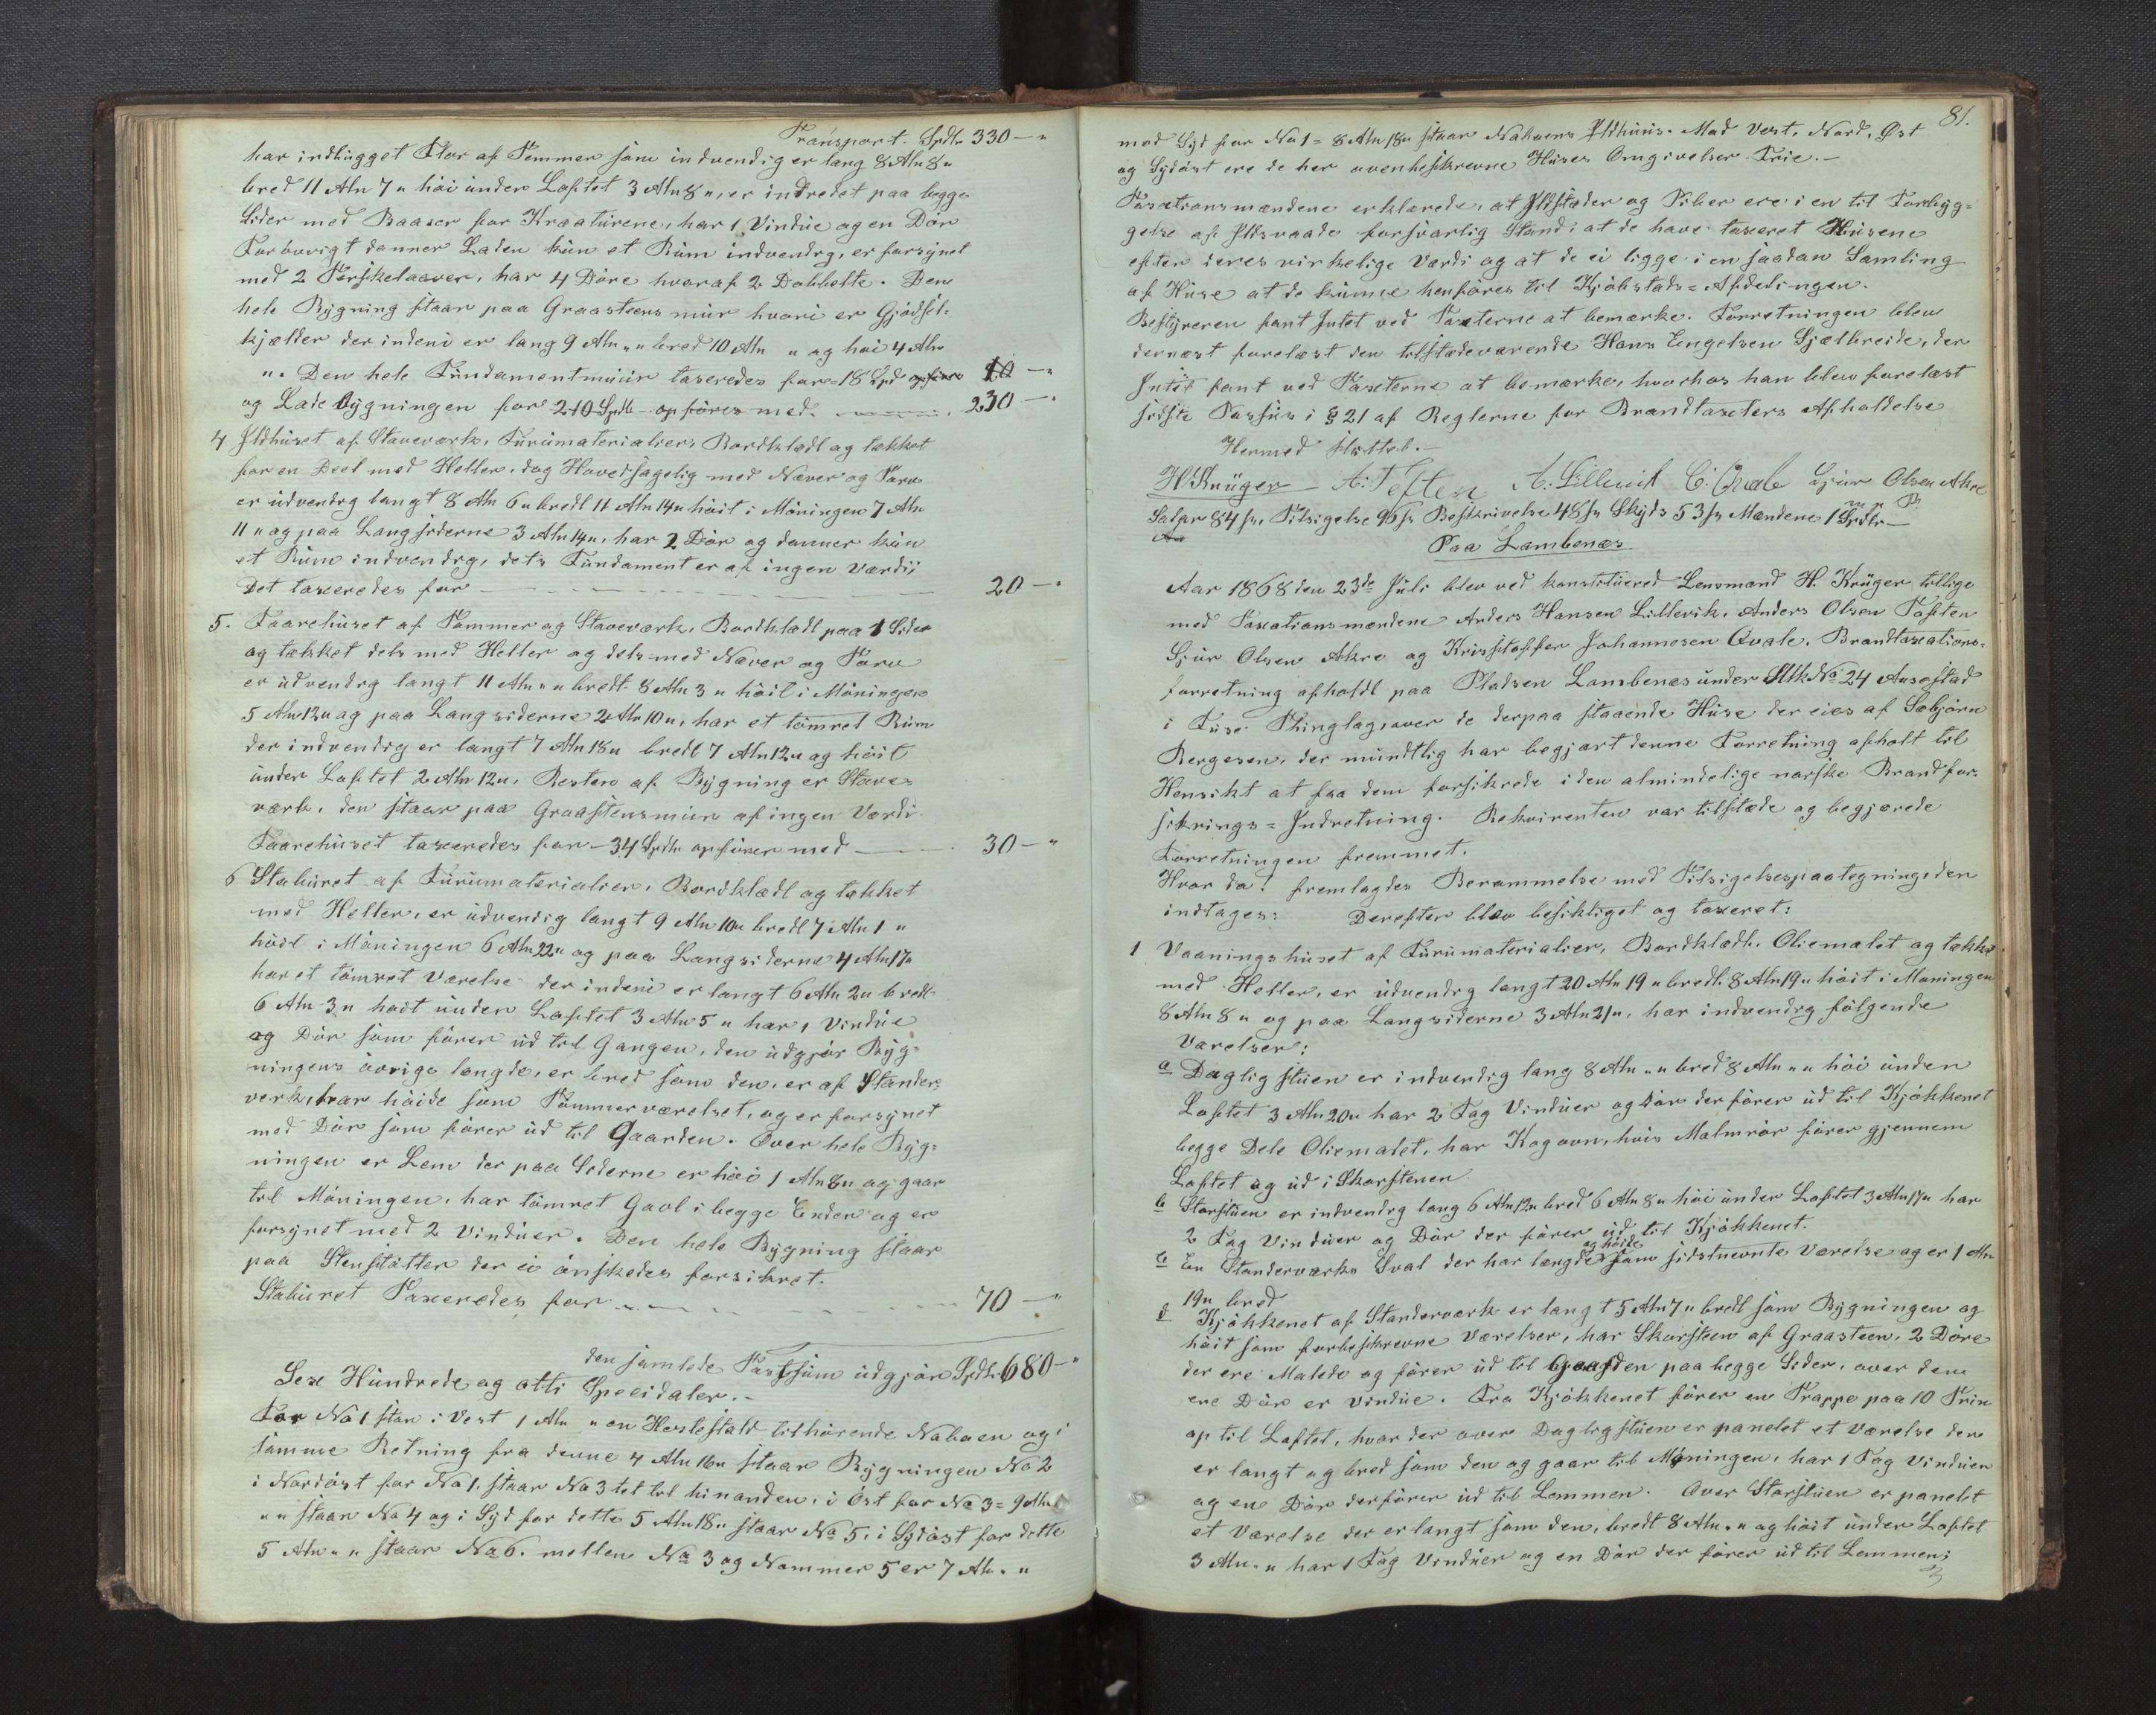 Transport. Spdlr 330 — "
har indhugget Flor af Tømmer som indvendig er lang 8 Aln 8 "
bred 11 Aln 7 " høi under Loftet 3 Aln 8 ", er indredet paa begge
Sider med Baaser for Kreaturene, har 1 Vindue og en Dør
Forøvrigt danner Laden kun et Rum indvendig, er forsynet
med 2 Tærskelaaver, har 4 Døre hvoraf 2 Dobbelte. Den
hele Bygning staar paa Graasteens muur hvori er Gjødsel-
kjælder der indeni er lang 9 Aln " " bred 10 Aln " og høi 4 Aln
". Den hele Fundamentmuur taxeredes for 18 Spd opføres 10 — "
og Lade bygningen for 240 Spdlr opføres med. 230 — "
4 Ildhuset af Staveværk, Furumaterialier, Bordklædt og tækket
for en Deel med Heller, dog Hovedsagelig med Næver og Torv
er udvendig langt 8 Aln 6 " bredt 11 Aln 14 " høit i Møningen 7 Aln
11 " og paa Langsiderne 3 Aln 14 ", har 2 Dør og danner kun
et Rum indvendig, dets Fundament er af ingen Værdi;
Det taxeredes for 20 — "
5. Faarehuset af Tømmer og Staveværk, Bordklædt paa 1 Side
og tækket dels med Heller og dels med Næver og Torv
er udvendig langt 11 Aln " " bredt 8 Aln 3 " høit i Møningen
5 Aln 12 " og paa Langsiderne 2 Aln 10 ", har et tømret Rum
der indvendig er langt 7 Aln 18 " bredt 7 Aln 12 " og høit
under Loftet 2 Aln 12 ". Resten af Bygning er Stave-
værk, den staar paa Graastensmur af ingen Værdi
Faarehuset taxeredes for 34 Spdlr opføres med 30 — "
6 Staburet af Furumaterialier, Bordklædt og tækket
med Heller, er udvendig langt 9 Aln 10 " bredt 7 Aln 1 "
høit i Møningen 6 Aln 22 " og paa Langsiderne 4 Aln 17 "
har et tømret Værelse der indeni er langt 6 Aln 2 " bredt
6 Aln 3 " høit under Loftet 3 Aln 5 " har 1 Vindue
og Dør som fører ud til Gangen, den udgjør Byg-
ningens øvrige længde, er bred som den, er af Stander-
verk, har høide som Tømmerværelset, og er forsynet
med Dør som fører ud til Gaarden. Over hele Byg-
ningen er Lem der paa Siderne er høi 1 Aln 8 " og gaar
til Møningen, har tømret Gavl i begge Ender og er
forsynet med 2 Vinduer. Den hele Bygning staar
paa Stenstøtter der ei ønskedes forsikret.
Staburet Taxeredes for 70 — "
den samlede Taxtsum udgjør Spdlr 680 — "
Sex Hundrede og otti Speeidaler. —
For No 1 staar i Vest 1 Aln " en Hestestald tilhørende Naboen og i
samme Retning fra denne 4 Aln 16 " staar Bygningen No 2
i Nordøst for No 1, staar No 3 tet til hinanden, i Øst for No 3 = 9 Aln
" " staar No 4 og i Syd for dette 5 Aln 18 " staar No 5, i Sydøst for dette
5 Aln " " staar No 6. mellem No 3 og Nommer 5 er 7 Aln. "
81.
mod Syd for No 1 = 8 Aln 18 " staar Naboens Ildhuus. Mod Vest, Nord, Øst
og Sydøst ere de her ovenbeskrevne Huses Omgivelser Frie. —
Taxationsmændene erklærede, at Ildsteder og Piber ere i en til Forebyg-
gelse af Ildsvaade forsvarlig Stand, at de have taxeret Husene
efter deres virkelige Værdi og at de ei ligge i en saadan Samling
af Huse at de kunne henføres til Kjøbstads-Afdelingen.
Bestyreren fant Intet ved Taxterne at bemærke. Forretningen blev
dernæst forelæst den tilstedeværende Hans Engelsen Sjælbreide, der
Intet fant ved Taxterne at bemærke, hvorhos han blev forelæst
sidste Passus i § 21 af Reglerne for Brandtaxters Afholdelse
Hermed sluttet.
H Krüger A: Toften A. Lillevik C. Qvale Sjur Olsen Akre
m p P
Salær 84 s, Tilsigelse 96 s Beskrivelse 48 s Skyds 53 s Mændene 1 Spdlr —
Paa Lambenæs
Aar 1868 den 23de Juli blev ved konstitueret Lensmand H. Krüger tillige
med Taxationsmændene Anders Hansen Lillevik, Anders Olsen Toften
Sjur Olsen Akre og Kristoffer Johannesen Qvale, Brandtaxations-
forretning afholdt paa Pladsen Lambenes under Mk No 24 Ausestad
i Fuse Thinglag, over de derpaa staaende Huse der eies af Sæbjørn
Bergesen, der mundtlig har begjært denne Forretning afholt til
Hensikt at faa dem forsikrede i den almindelige norske Brandfor-
sikrings-Indretning. Rekvirenten var tilstede og begjærede
Forretningen fremmet.
Hvor da: fremlagdes Berammelse med Tilsigelsespaategning, den
indtages: Derefter blev besiktiget og taxeret:
1 Vaaningshuset af Furumaterialier, Bordklædt, Oliemalet og tække
med Heller, er udvendig langt 20 Aln 19 " bredt 8 Aln 19 " høit i Møningen
8 Aln 8 " og paa Langsiderne 3 Aln 21 ", har indvendig følgende
Værelser:
a Daglig stuen er indvendig lang 8 Aln " " bred 8 Aln " " høi under
Loftet 3 Aln 20 " har 2 Fag Vinduer og Dør der fører ud til Kjøkkenet
begge Dele Oliemalet, har Kogovn, hvis Malmrør fører gjennem
Loftet og ud i Skorstenen
b Storstuen er indvendig lang 6 Aln 12 " bred 6 Aln 8 " høi under Loftet 3 Aln 17 " har
2 Fag Vinduer og Dør der fører ud til Kjøkkenet.
og høide
c En Standerværks Sval der har længde som sidstnævnte Værelse og er 1 Aln
19 " bred
d Kjøkkenet af Standerværk er langt 5 Aln 7 " bredt som Bygningen og
høit som forbeskrevne Værelser, har Skorsteen af Graasteen, 2 Døre
der ere Malede og fører ud til Gaarden paa begge Sider, over dem
ene Dør er Vindue. Fra Kjøkkenet fører en Trappe paa 10 Trin
op til Loftet, hvor der over Daglig stuen er panelet et Værelse der
er langt og bred som den og gaar til Møningen, har 1 Fag Vinduer
og en Dør der fører ud til Lemmen. Over Storstuen er panelet
et Værelse der er langt som den, bredt 8 Aln " og høit under Loftet
3 Aln " " har 1 Fag Vinduer og en Dør der fører ud til Lemmen;